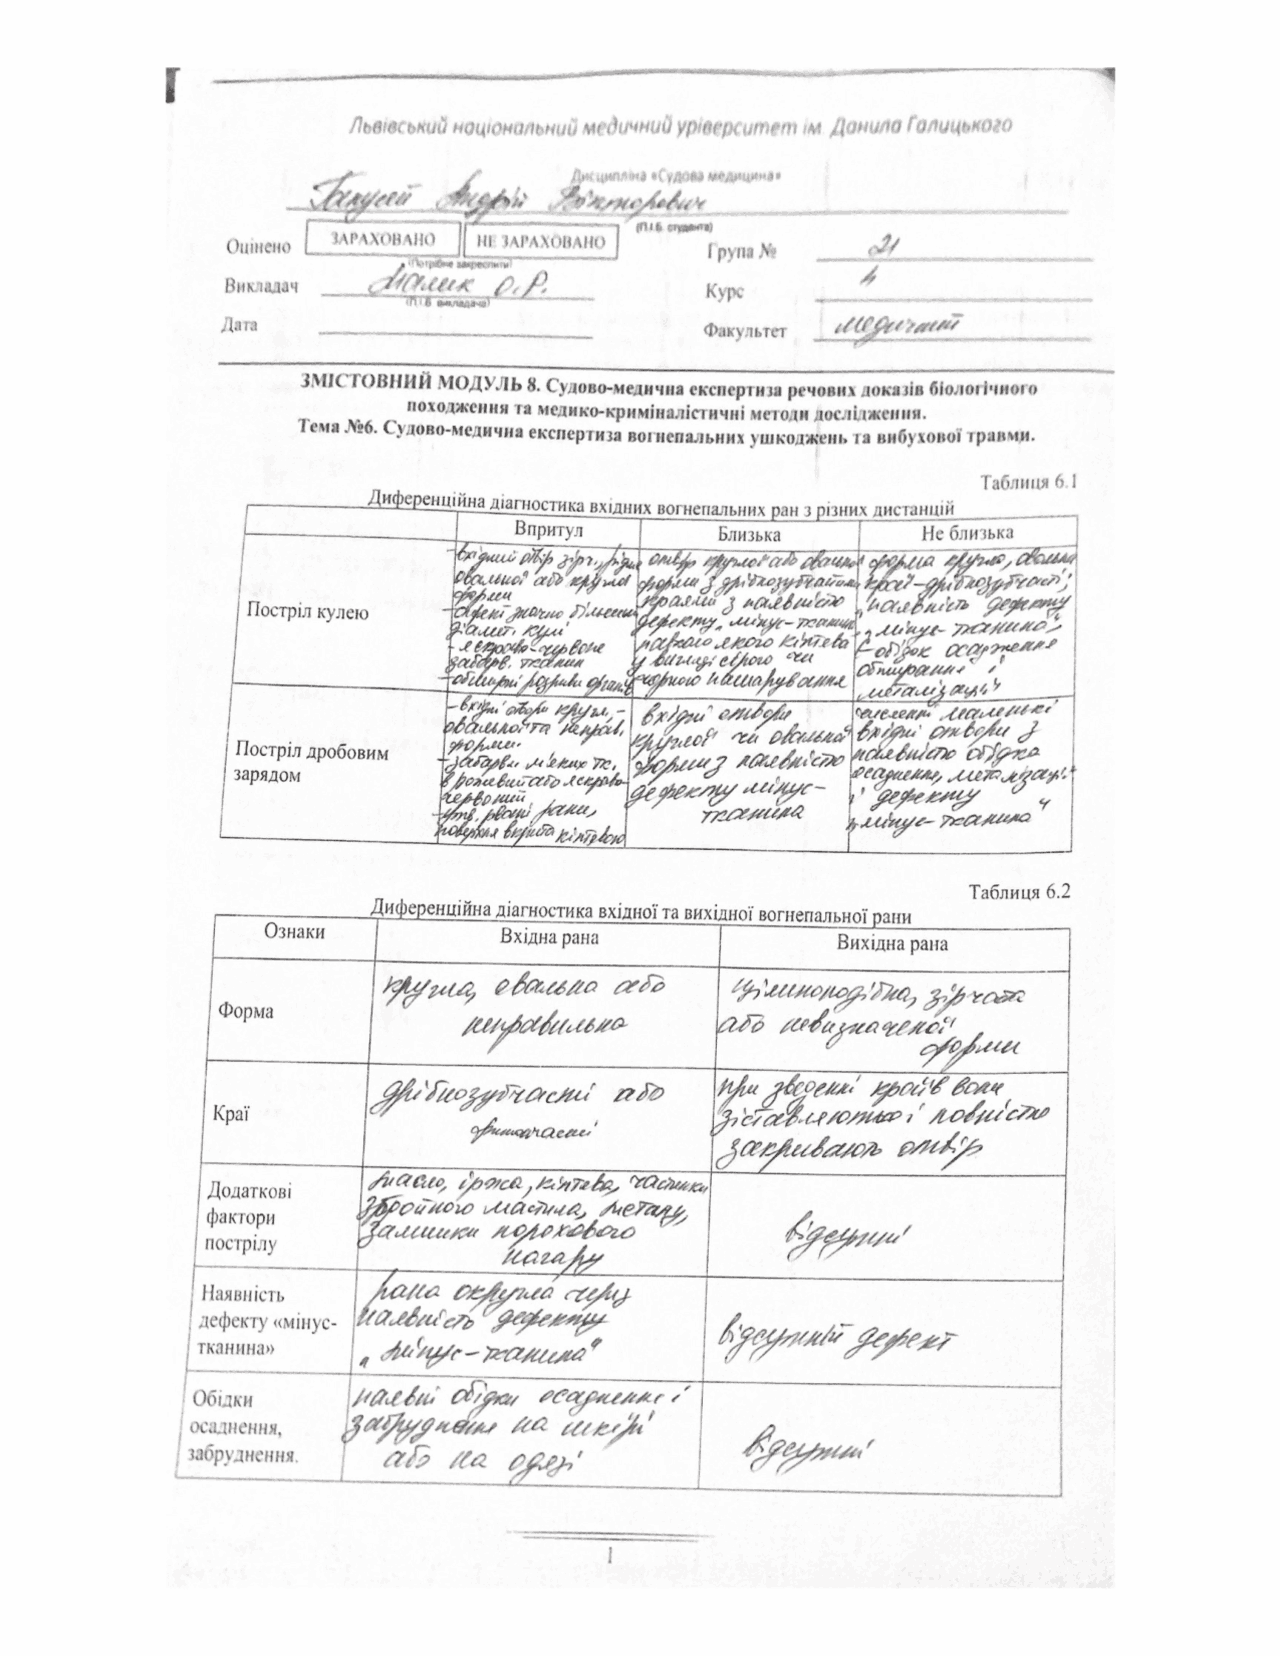 Львівський національний медичний університет ім. Данила Галицького
Дисципліна «Судова медицина»
Андрій Вікторович
(П.І.Б. студента)
Оцінено ЗАРАХОВАНО НЕ ЗАРАХОВАНО
(Потрібне закреслити)
Група № 21
Викладач Малик О.Р.
(П.І.Б. викладача)
Курс 4
Дата
Факультет медичний
ЗМІСТОВНИЙ МОДУЛЬ 8. Судово-медична експертиза речових доказів біологічного
походження та медико-криміналістичні методи дослідження.
Тема №6. Судово-медична експертиза вогнепальних ушкоджень та вибухової травми.
Таблиця 6.1
Диференційна діагностика вхідних вогнепальних ран з різних дистанцій
Впритул Близька Не близька
Постріл кулею
-вхідний отвір зірч., рідше
овальної або круглої
форми
-дефект значно більший
діамет. кулі
-яскраво-червоне
забарв. тканин
-обширні розриви органів
отвір круглої або овальної
форми з дрібнозубчатими
краями з наявністю
дефекту „мінус-тканина
навколо якого кіптява
у вигляді сірого чи
чорного нашарування
форма кругла, овальна
краї-дрібнозубчасті;
наявність дефекту
„мінус-тканина";
-обідок осадження
обтирання і
металізації"
Постріл дробовим
зарядом
-вхідні отвори кругл.,-
овальної та неправ.
форми.
-забарвл м'яких тк.
в рожевий або яскраво-
червоний
-утв. рвані рани,
поверхня вкрита кіптявою
вхідні отвори
круглої чи овальної
форми з наявністю
дефекту мінус-
тканина
численні маленькі
вхідні отвори з
наявністю обідка
осаднення, металізації
і дефекту
„мінус-тканина"
Таблиця 6.2
Диференційна діагностика вхідної та вихідної вогнепальної рани
Ознаки Вхідна рана Вихідна рана
Форма
кругла, овальна або
неправильна
щілиноподібна, зірчата
або невизначеної
форми
Краї
дрібнозубчасті або
при зведенні країв вони
зіставляються і повністю
закривають отвір
Додаткові
фактори
пострілу
масло, іржа, кіптява, частинки
збройного мастила, металу,
залишки порохового
нагару
відсутні
Наявність
дефекту «мінус-
тканина»
рана округла через
наявність дефекту
„мінус-тканина"
відсутній дефект
Обідки
осаднення,
забруднення.
наявні обідки осаднення і
забруднення на шкірі
або на одязі
відсутні
1